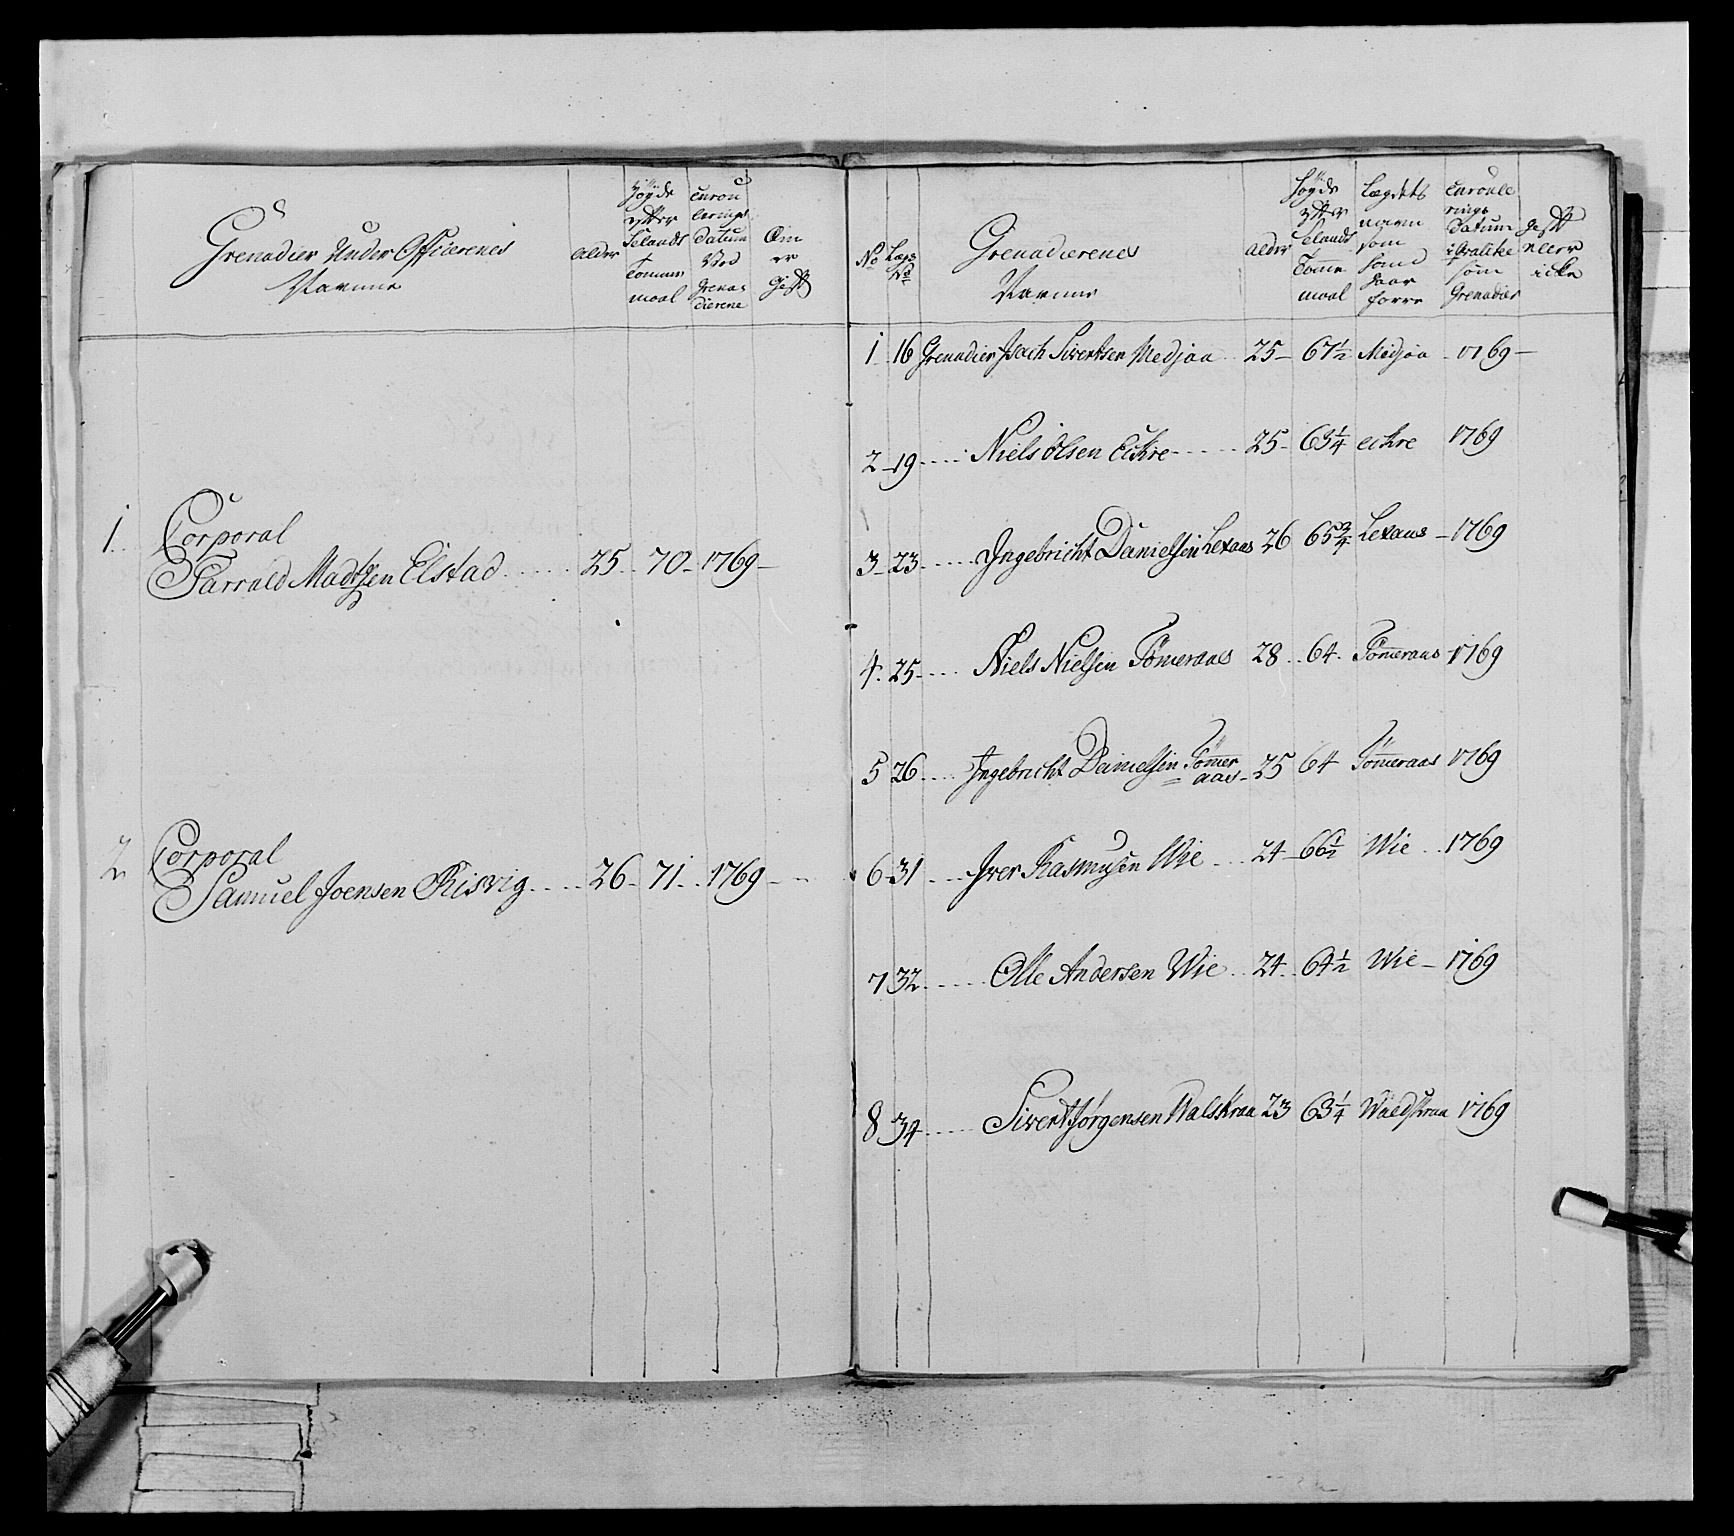 Grenadier Under Officerenes
Navnne
alder
Høyde
efter
Selands
Tomme
maal
enrou
lerings
datum
Ved
Grena
dierene
Om
er
gift
1. Corporal
Farvald Madtzen Elstad 25 70 1769
2 Corporal
Samuel Joensen Risvig 26 71 1769
No Lægs No
Grenadierenes
Navne
alder
høyde
efter
Selands
Tomme
maal
Lægdets
navn
som
hand
staar
forre
enroule
rings
Datum
i Qvalitee
som
Grenadier
gift
eller
icke
1 16 Grenadier Isach Sivertsen Medjaa 25 67½ Medjaa 1769
2 19 Niels Olsen Eckre 25 63¼ eckre 1769
3 23 Ingebricht Danielsen Lexaas 26 65¾ Lexaas 1769
4 25 Niels Nielsen Tömeraas 28 64 Tömeraas 1769
5 26 Ingebricht Danielsen Tömer
aas 25 64 Tömeraas 1769
6 31 Iver Rasmusen Wie 24 66½ Wie 1769
7 32 Olle Andersen Wie 24 64½ Wie 1769
8 34 Sivert Jørgensen Walskraa 23 63¼ Waldskraa 1769